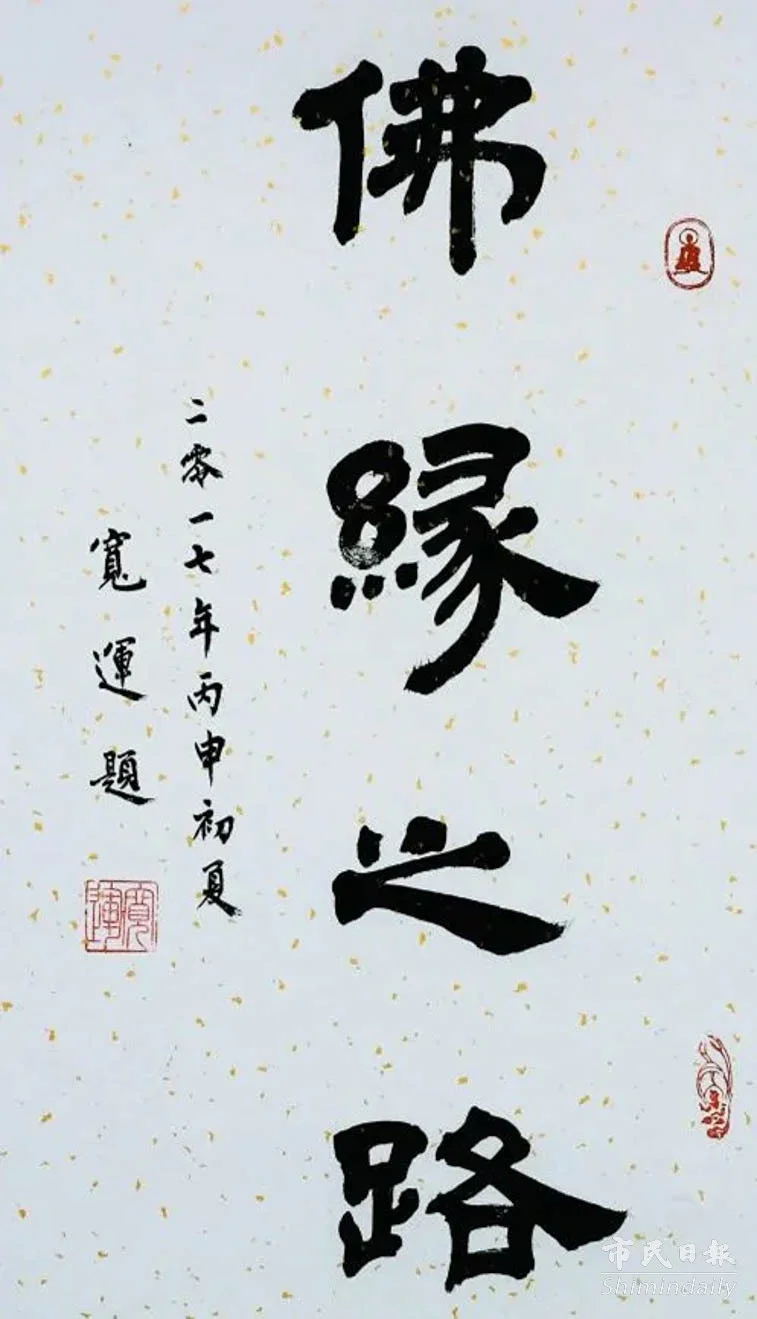 佛緣之路
二零一七年丙申初夏
寬運題
寬運
市民日報
Shimindaily